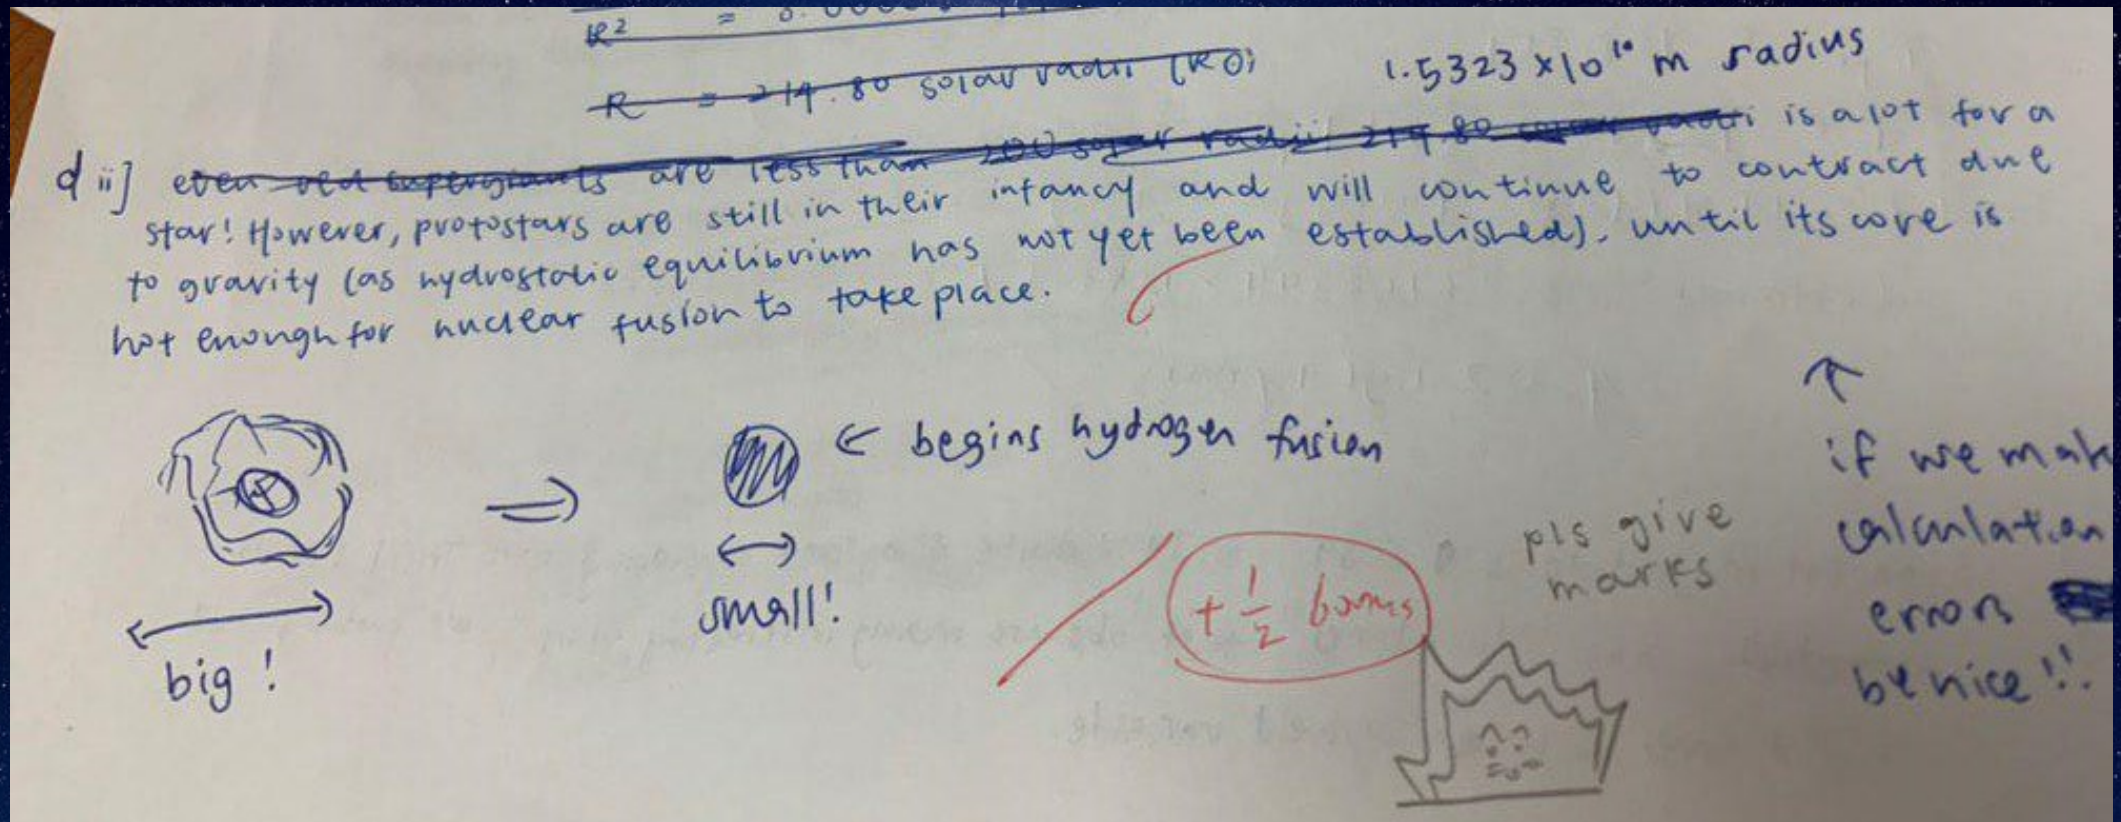 R² =
R = 214.80 solar radii (R⊙)
1.5323 × 10¹⁰ m radius
d ii] even red supergiants are less than 200 solar radii 219.80 solar radii is a lot for a
star! However, protostars are still in their infancy and will continue to contract due
to gravity (as hydrostatic equilibrium has not yet been established), until its core is
hot enough for nuclear fusion to take place.
← begins hydrogen fusion
⇒
small!
big!
+ ½ bonus
pls give
marks
↑
if we mak
calculation
errors
be nice!!